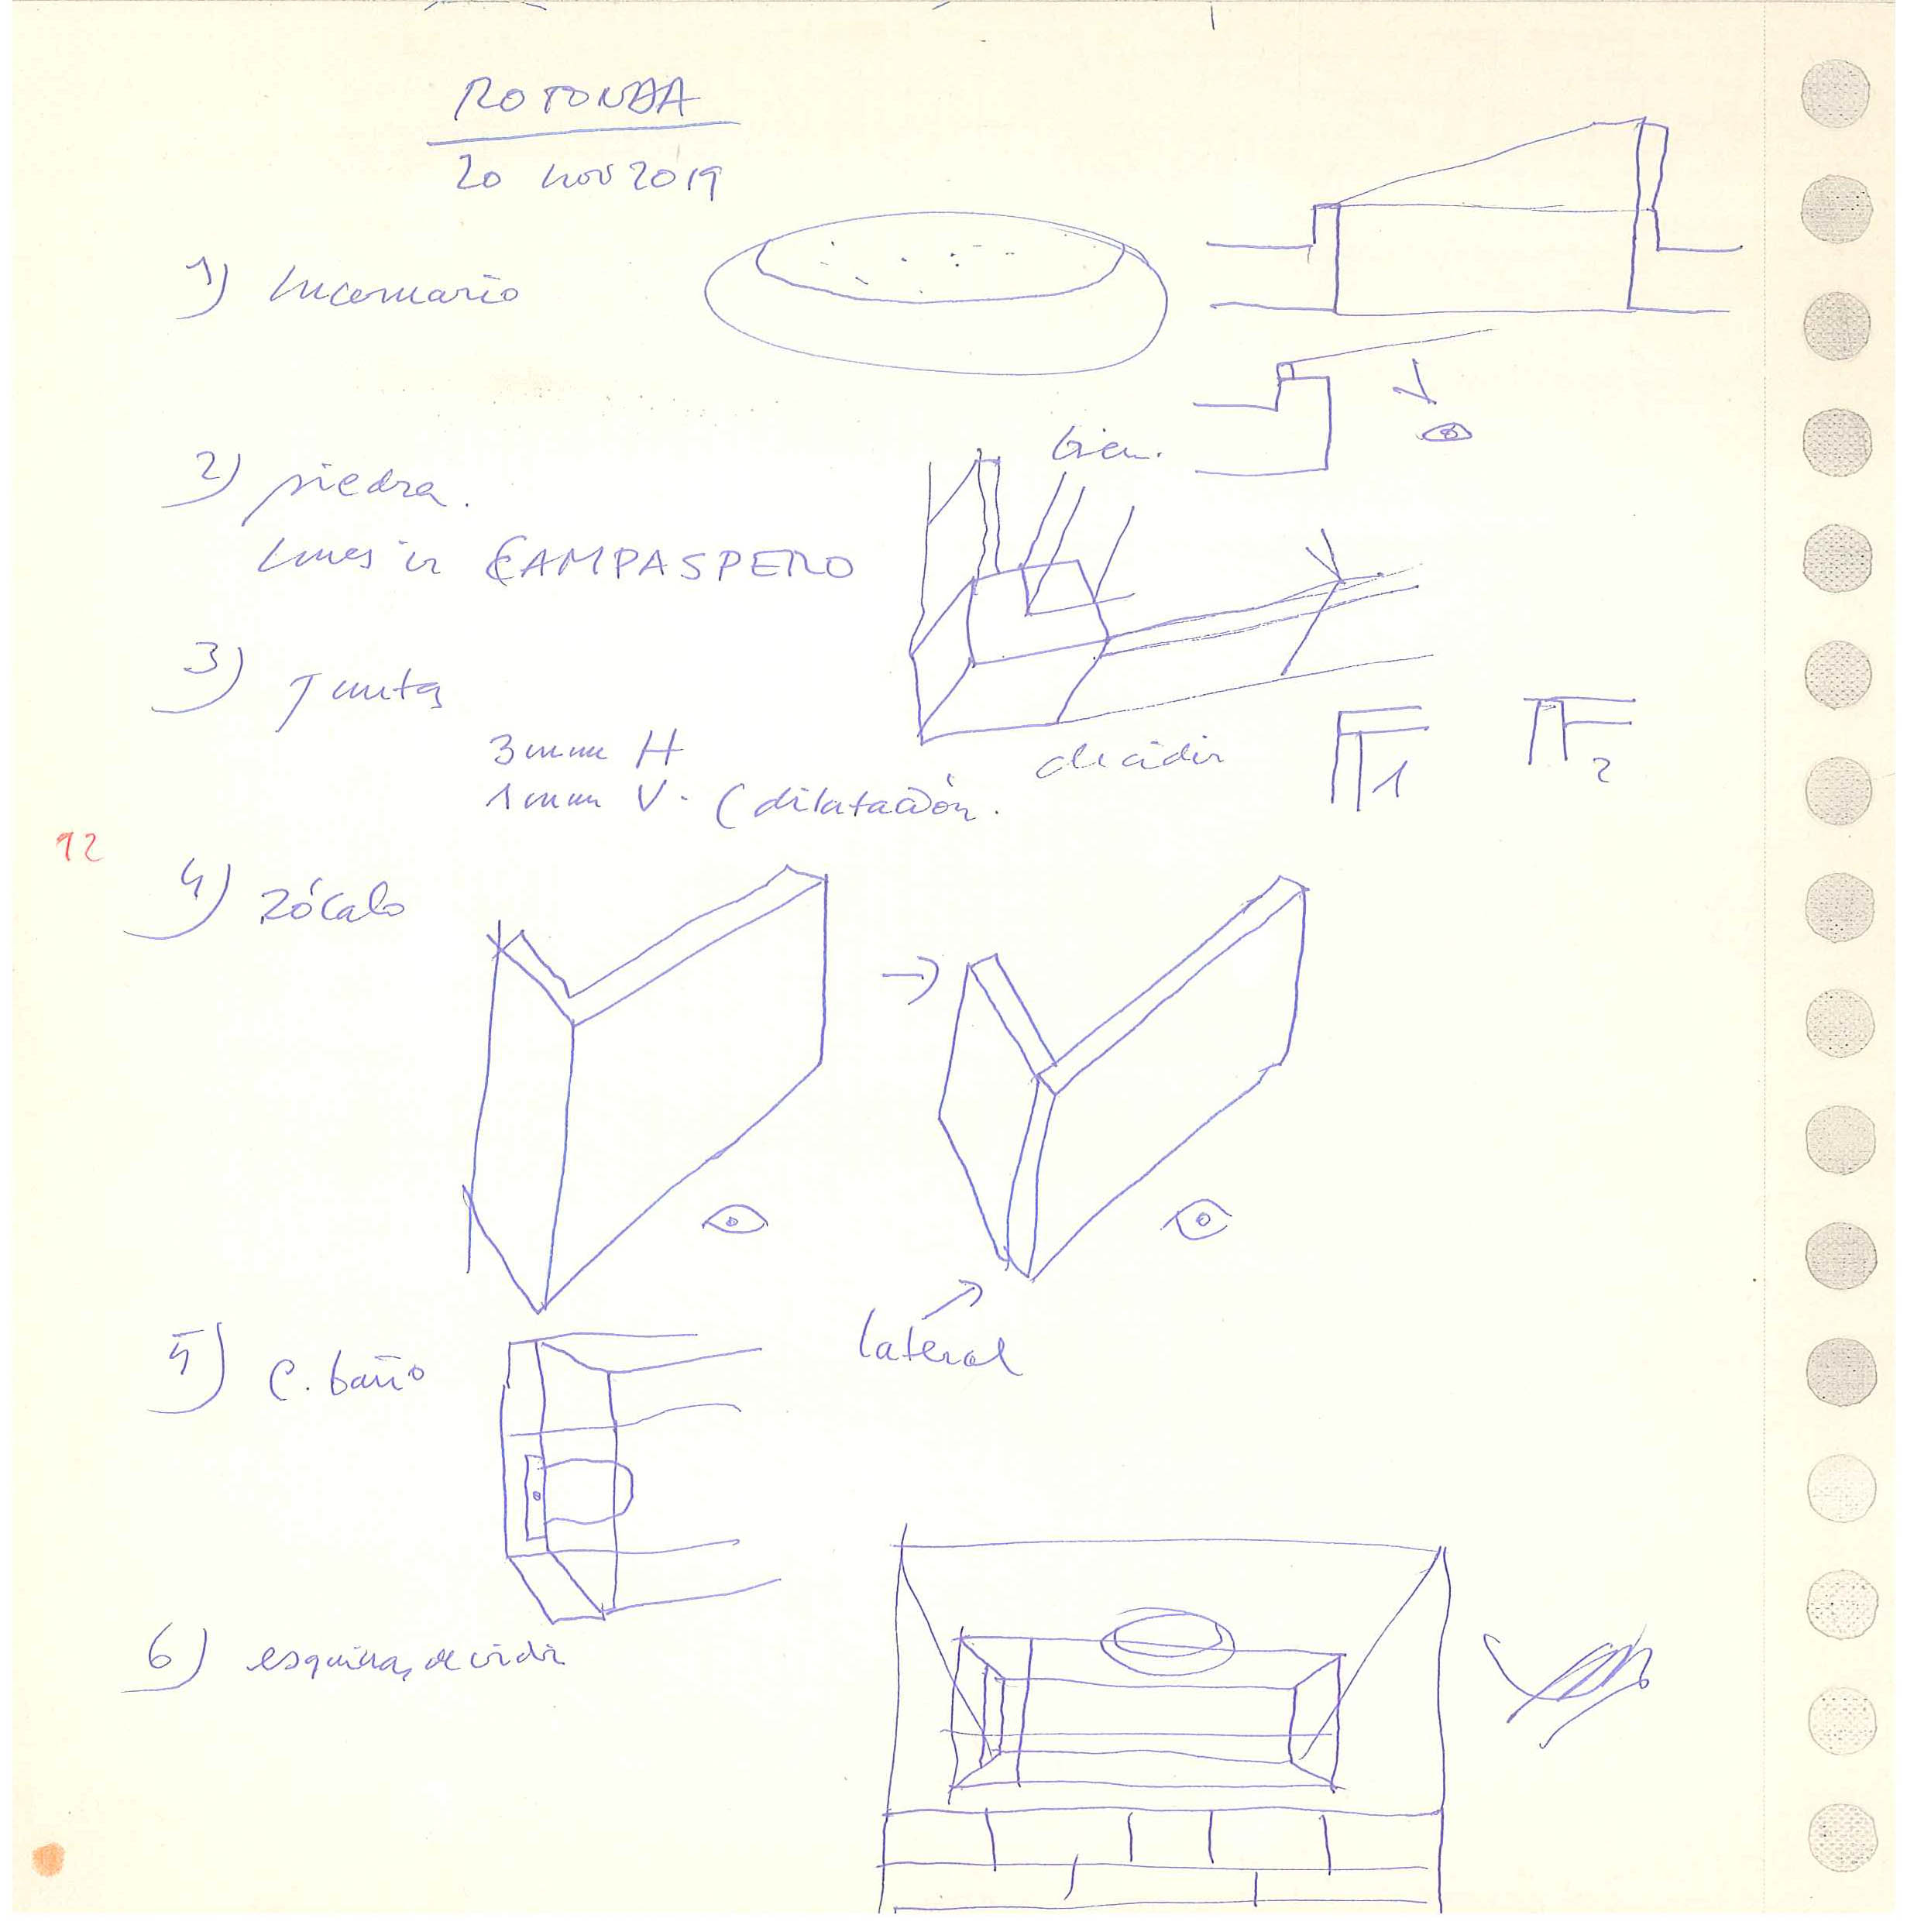 ROTONDA
20 nov 2019
1) lucernario
bien.
2) piedra.
lunes ir CAMPASPERO
3) Juntas
3 mm H
1 mm V. (dilatación.
decidir
1
2
12
4) zócalo
lateral
5) C. baño
6) esquinas, decidir